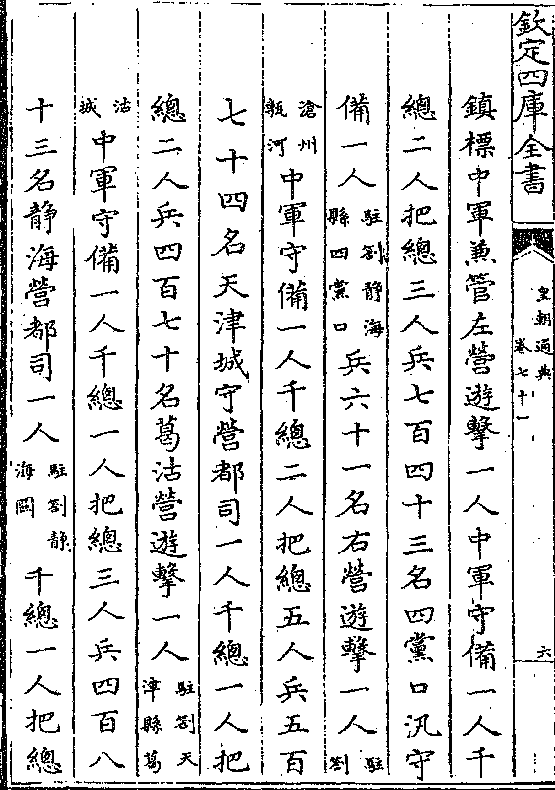 欽定四庫全書
皇朝通典
卷七十一
六
鎮標中軍兼管左營遊擊一人中軍守備一人千
總二人把總三人兵七百四十三名四黨口汛守
備一人駐劄静海縣四黨口兵六十一名右營遊擊一人駐劄
滄州甎河中軍守備一人千總二人把總五人兵五百
七十四名天津城守營都司一人千總一人把
總二人兵四百七十名葛沽營遊擊一人駐劄天津縣葛
沽城中軍守備一人千總一人把總三人兵四百八
十三名静海營都司一人駐劄静海關千總一人把總